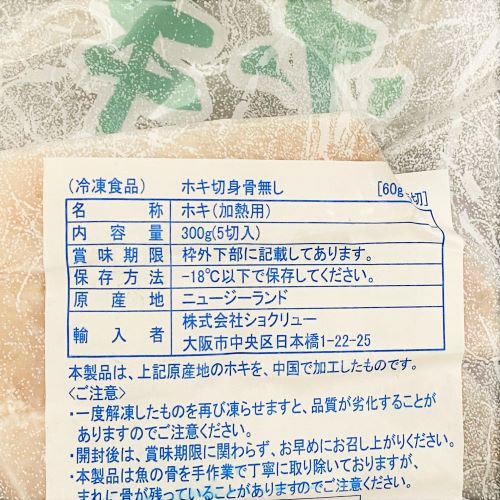 ホキ
(冷凍食品) ホキ切身骨無し [60g 切]
名 称 ホキ(加熱用)
内 容 量 300g(5切入)
賞味期限 枠外下部に記載してあります。
保存方法 -18℃以下で保存してください。
原 産 地 ニュージーランド
輸 入 者 株式会社ショクリュー
大阪市中央区日本橋1-22-25
本製品は、上記原産地のホキを、中国で加工したものです。
<ご注意>
・一度解凍したものを再び凍らせますと、品質が劣化することが
ありますのでご注意ください。
・開封後は、賞味期限に関わらず、お早めにお召し上がりください。
・本製品は魚の骨を手作業で丁寧に取り除いておりますが、
まれに骨が残っていることがありますのでご注意ください。